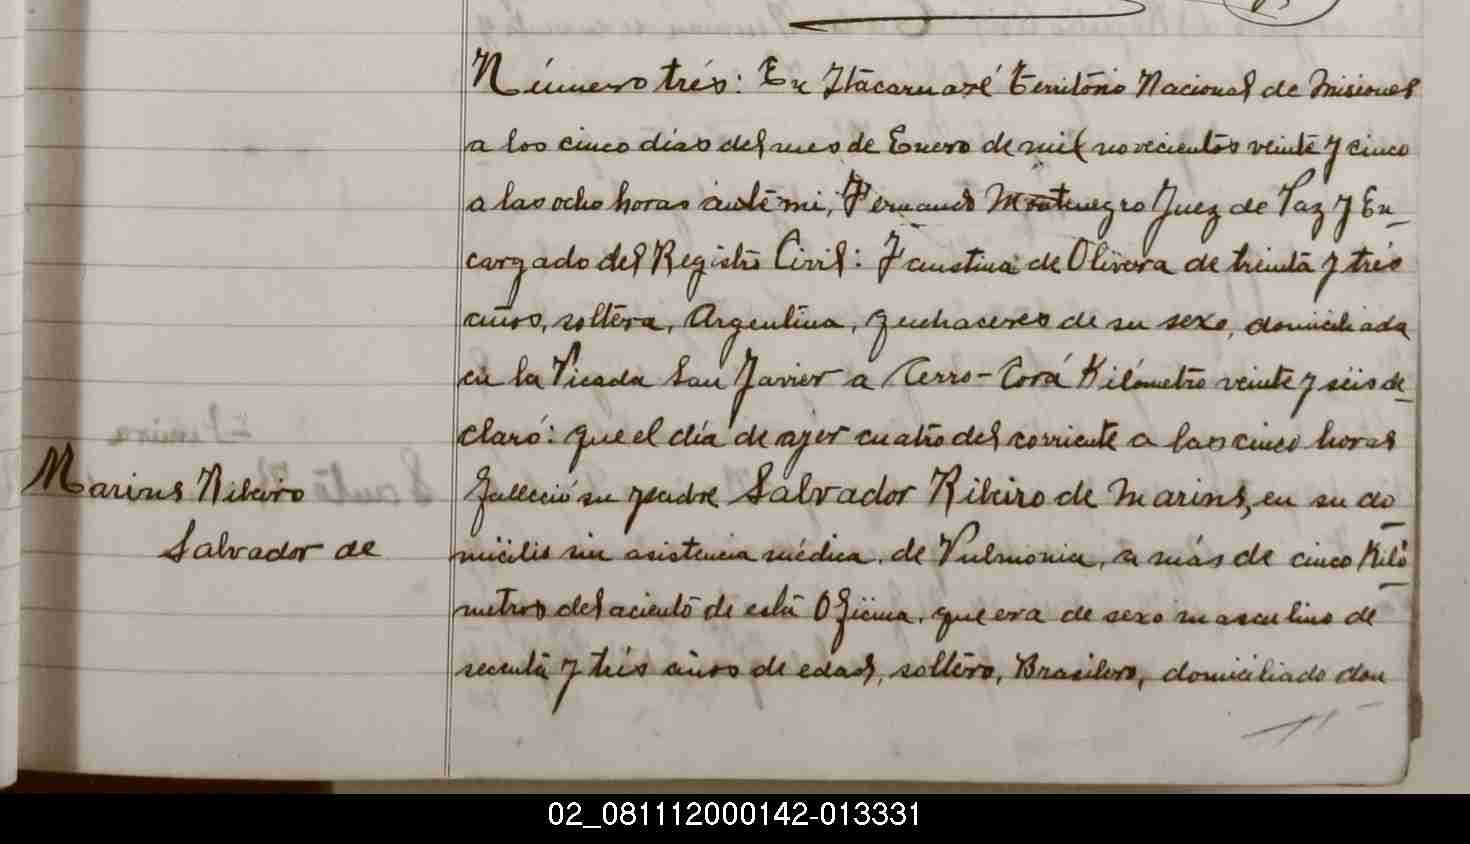 Número trés: En Itacaruaré Territorio Nacional de Misiones
a los cinco dias del mes de Enero de mil novecientos veinte y cinco
a las ocho horas ante mi, Fernando Montenegro Juez de Paz y En-
cargado del Registro Civil: Faustina de Olivera de treinta y trés
años, soltera, Argentina, quehaceres de su sexo, domiciliada
en la Picada San Javier a Cerro-Corá Kilómetro veinte y séis de-
claró: que el día de ayer cuatro del corriente a las cinco horas
Marins Ribeiro
Salvador de
falleció su padre Salvador Ribeiro de Marins, en su do-
micilio sin asistencia médica, de Pulmonia, a más de cinco Kiló-
metros del aciento de esta Oficina, que era de sexo masculino de
secenta y trés años de edad, soltero, Brasilero, domiciliado don
02_081112000142-013331